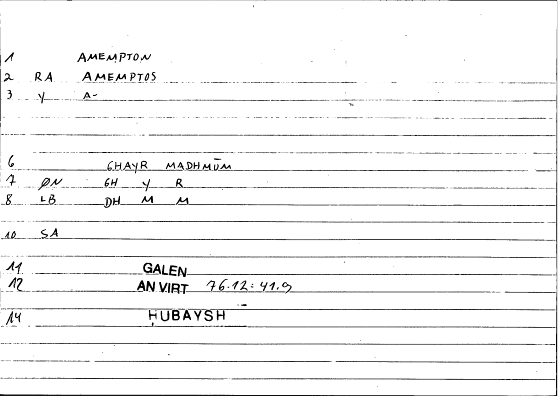 1 AMEMPTON
2 RA AMEMPTOS
3 Y A-
6 GHAYR MADHMŪM
7 ØN GH Y R
8 LB DH M M
10 SA
11 GALEN
12 AN VIRT 76.12:41.9
14 ḤUBAYSH